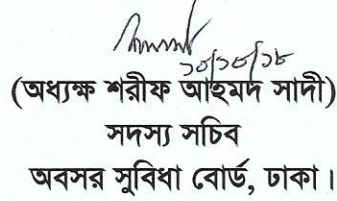 ১০/১০/১৮
(অধ্যক্ষ শরীফ আহমদ সাদী)
সদস্য সচিব
অবসর সুবিধা বোর্ড, ঢাকা।